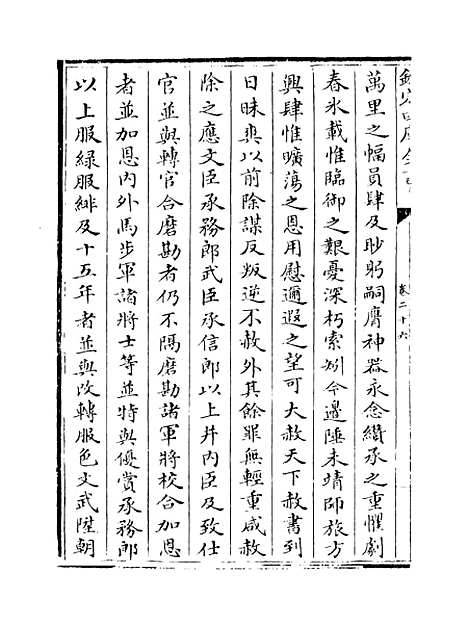 欽定四庫全書
卷二十六
萬里之幅員肆及眇躬嗣膺神器永念纘承之重懼劇
春氷載惟臨御之艱憂深朽索矧今邊陲未靖師旅方
興肆惟曠蕩之恩用慰邇遐之望可大赦天下赦書到
日昧爽以前除謀反叛逆不赦外其餘罪無輕重咸赦
除之應文臣承務郎武臣承信郎以上并内臣及致仕
官並與轉官合磨勘者仍不隔磨勘諸軍將校合加恩
者並加恩内外馬步軍諸將士等並特與優賞承務郎
以上服緑服緋及十五年者並與改轉服色文武陞朝